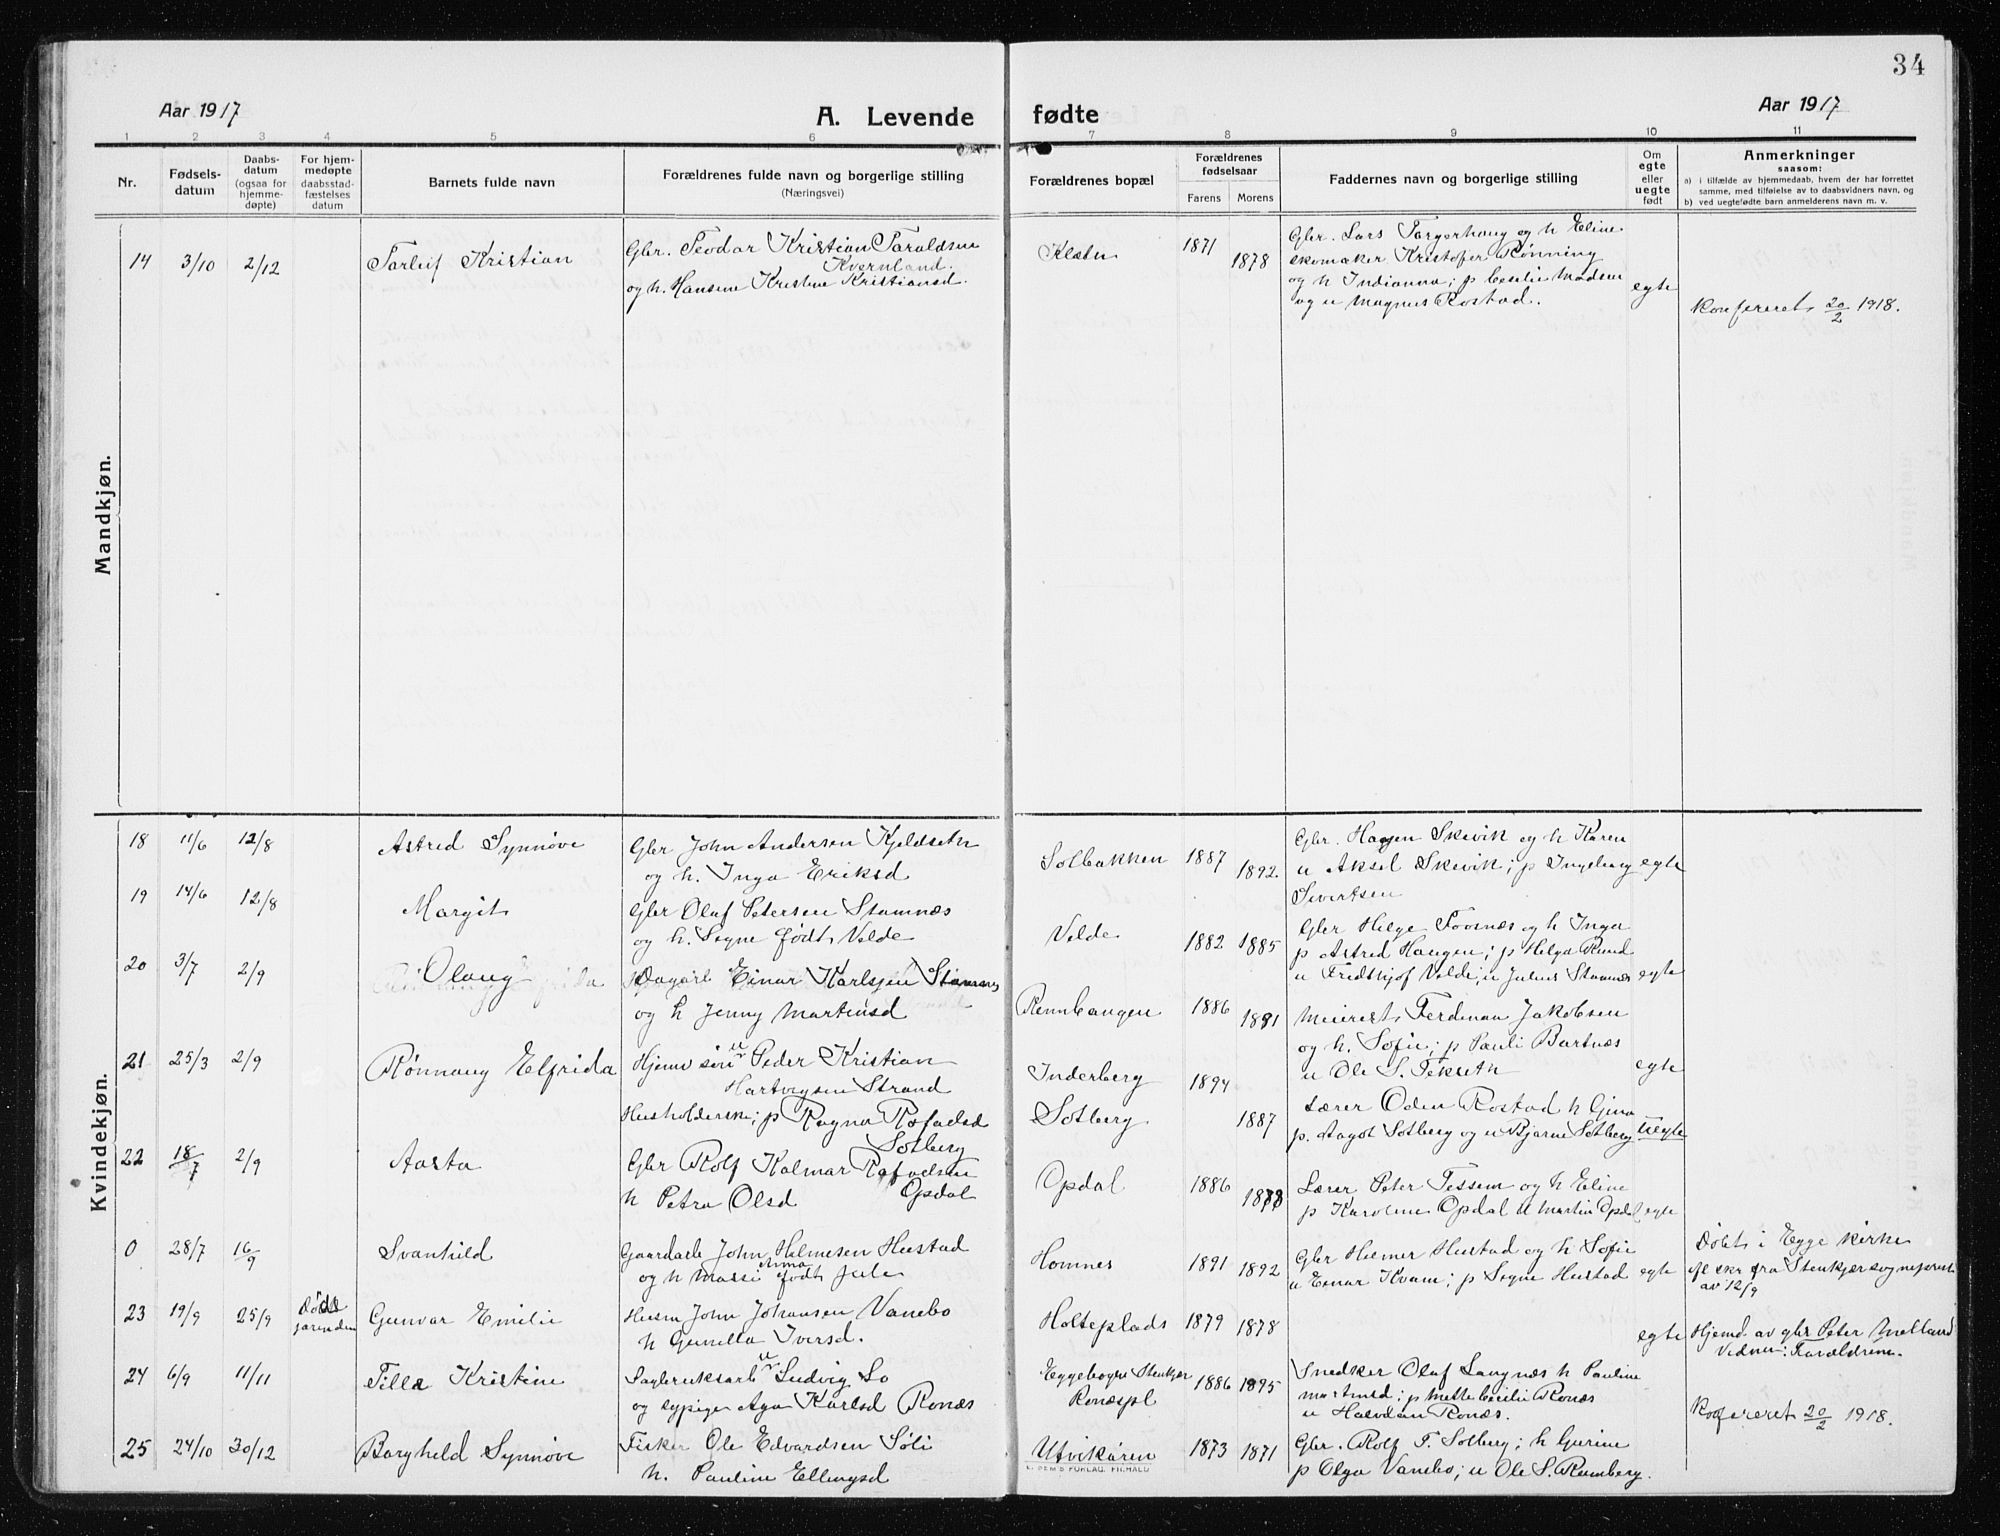 34
Aar 1917
A. Levende fødte
Aar 1917
1 2 3 4 5 6 7 8 9 10 11
Nr.
Fødsels-
datum
Daabs-
datum
(ogsaa for
hjemme-
døpte)
For hjem-
medøpte
daabsstad-
fæstelses
datum
Barnets fulde navn
Forældrenes fulde navn og borgerlige stilling
(Næringsvei)
Forældrenes bopæl
Forældrenes
fødselsaar
Farens Morens
Faddernes navn og borgerlige stilling
Om
egte
eller
uegte
født
Anmerkninger
saasom:
a) i tilfælde av hjemmedaab, hvem der har forrettet
samme, med tilføielse av to daabsvidners navn, og
b) ved uegtefødte barn anmelderens navn m. v.
Mandkjøn.
14 3/10 2/12 Torleif Kristian
Gbr. Teodor Kristian Taraldsen
Kvernland.
og h. Hansine Kristine Kristiansd.
1871 1878
Gbr. Lars Torgerhaug og h Eline
skomaker Kristofer Rønning
og h Indianna; p Cecilie Madsen
og u Magnus Rostad.
egte
Konfereret 20/2 1918.
Kvindekjøn.
18 11/6 12/8 Astrid Synnøve
Gbr John Andersen Kjeldseth
og h. Inga Eriksd
Solbakken 1887 1892.
Gbr. Hagen Skevik og h Karen
u Aksel Skevik; p Ingeborg
Sivertsen
egte
19 14/6 12/8 Margit
Gbr Oluf Petersen Stamnæs
og h. Signe født Velde
Velde 1882 1885
Gbr Helge Tovsnæs og h Inga
p Astrid Haugen; p Helga Rund
u Fridthjof Velde; u Julius Stamnæs
egte
20 3/7 2/9 Olaug
Dagarb Einar Karlsjen Stamnes
og h Jenny Martinsd
Rennhaugen 1886 1891
Meierist Ferdinan Jakobsen
og h. Sofie; p Pauli Bartnæs
u Ole S. Tekseth
egte
21 25/3 2/9 Rønnaug Elfrida
Hjemv søn u Peder Kristian
Hartvigsen Strand
Husholderske; p Ragna Rofaelsd
Solberg
Inderberg 1894
Solberg 1887
Lærer Oden Rostad h Gina
p. Aagot Solberg og u Bjarne Solberg
uegte
22 18/7 2/9 Aasta
Gbr Rolf Kalmar Rafaelsen
Opdal
h Petra Olsd
Opdal 1886 1878
Lærer Peter Tessem og h Eline
p Karoline Opdal u Martin Opdal
egte
0 28/7 16/9 Svanhild
Gaardarb John Hilmesen Hustad
og h Massi Anna født Jule
Homnes 1891 1892
Gbr Hilmer Hustad og h Sofie
u Einar Kvam; p Signe Hustad
egte
Døbt i Egge kirke
if skr fra Stenkjær sogneprest
av 12/9
23 19/9 25/9 Gunvar Emilie
Husm John Johansen Vanebo
h Gunella Iversd.
Holteplads 1879 1878
egte
Hjemd av gbr Peter Melland
Vidner: Foreldrene.
24 6/9 11/11 Tilla Kristine
Sagbruksarb u Ludvig Lo
og sypige Aga Karlsd Ronæs
Ronæspl 1886 1895
Snedker Olaf Langnæs h Pauline
Martinsd; p Mette Cecilie Ronæs
u Halvdan Ronæs.
Kofereret 20/2 1918.
25 24/10 30/12 Borghild Synnøve
Fisker Ole Edvardsen Søli
h. Pauline Ellingsd
Utvikåren 1873 1871
Gbr. Rolf T. Solberg; h Gurine
p Olga Vanebo; u Ole S. Rumberg.